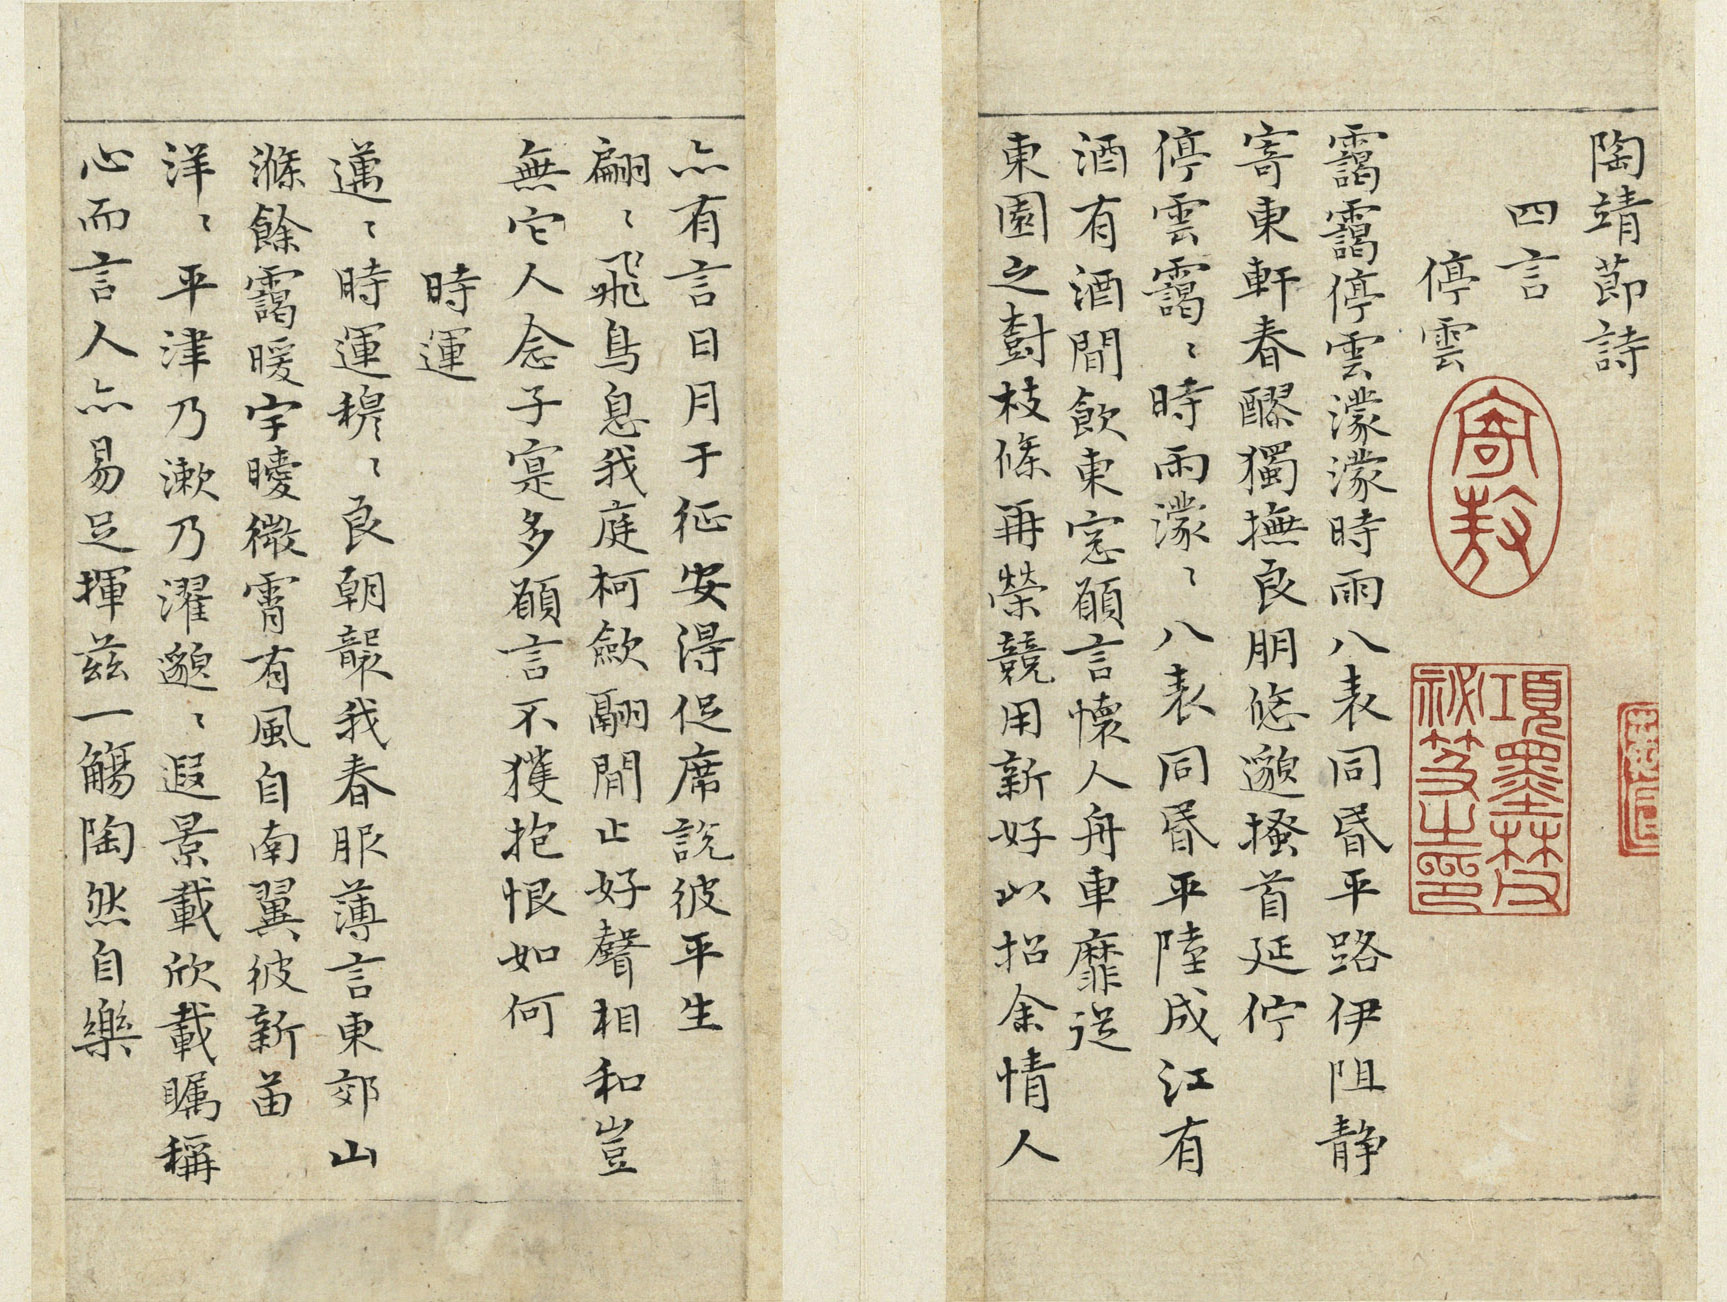 陶靖莭詩
四言
停雲
靄靄停雲濛濛時雨八表同昏平路伊阻静
寄東軒春醪獨撫良朋悠邈搔首延佇
停雲靄〻時雨濛〻八表同昏平陸成江有
酒有酒閒飲東窓願言懷人舟車靡從
東園之樹枝條再榮競用新好以招余情人
寄敖
項墨林父
祕笈之印
亦有言日月于征安得促席說彼平生
翩〻飛鳥息我庭柯歛翮閒止好聲相和豈
無它人念子寔多願言不獲抱恨如何
時運
邁〻時運穆〻良朝襲我春服薄言東郊山
滌餘靄曖宇曖微霄有風自南翼彼新苗
洋〻平津乃漱乃濯邈〻遐景載欣載矚稱
心而言人亦易足揮茲一觴陶然自樂